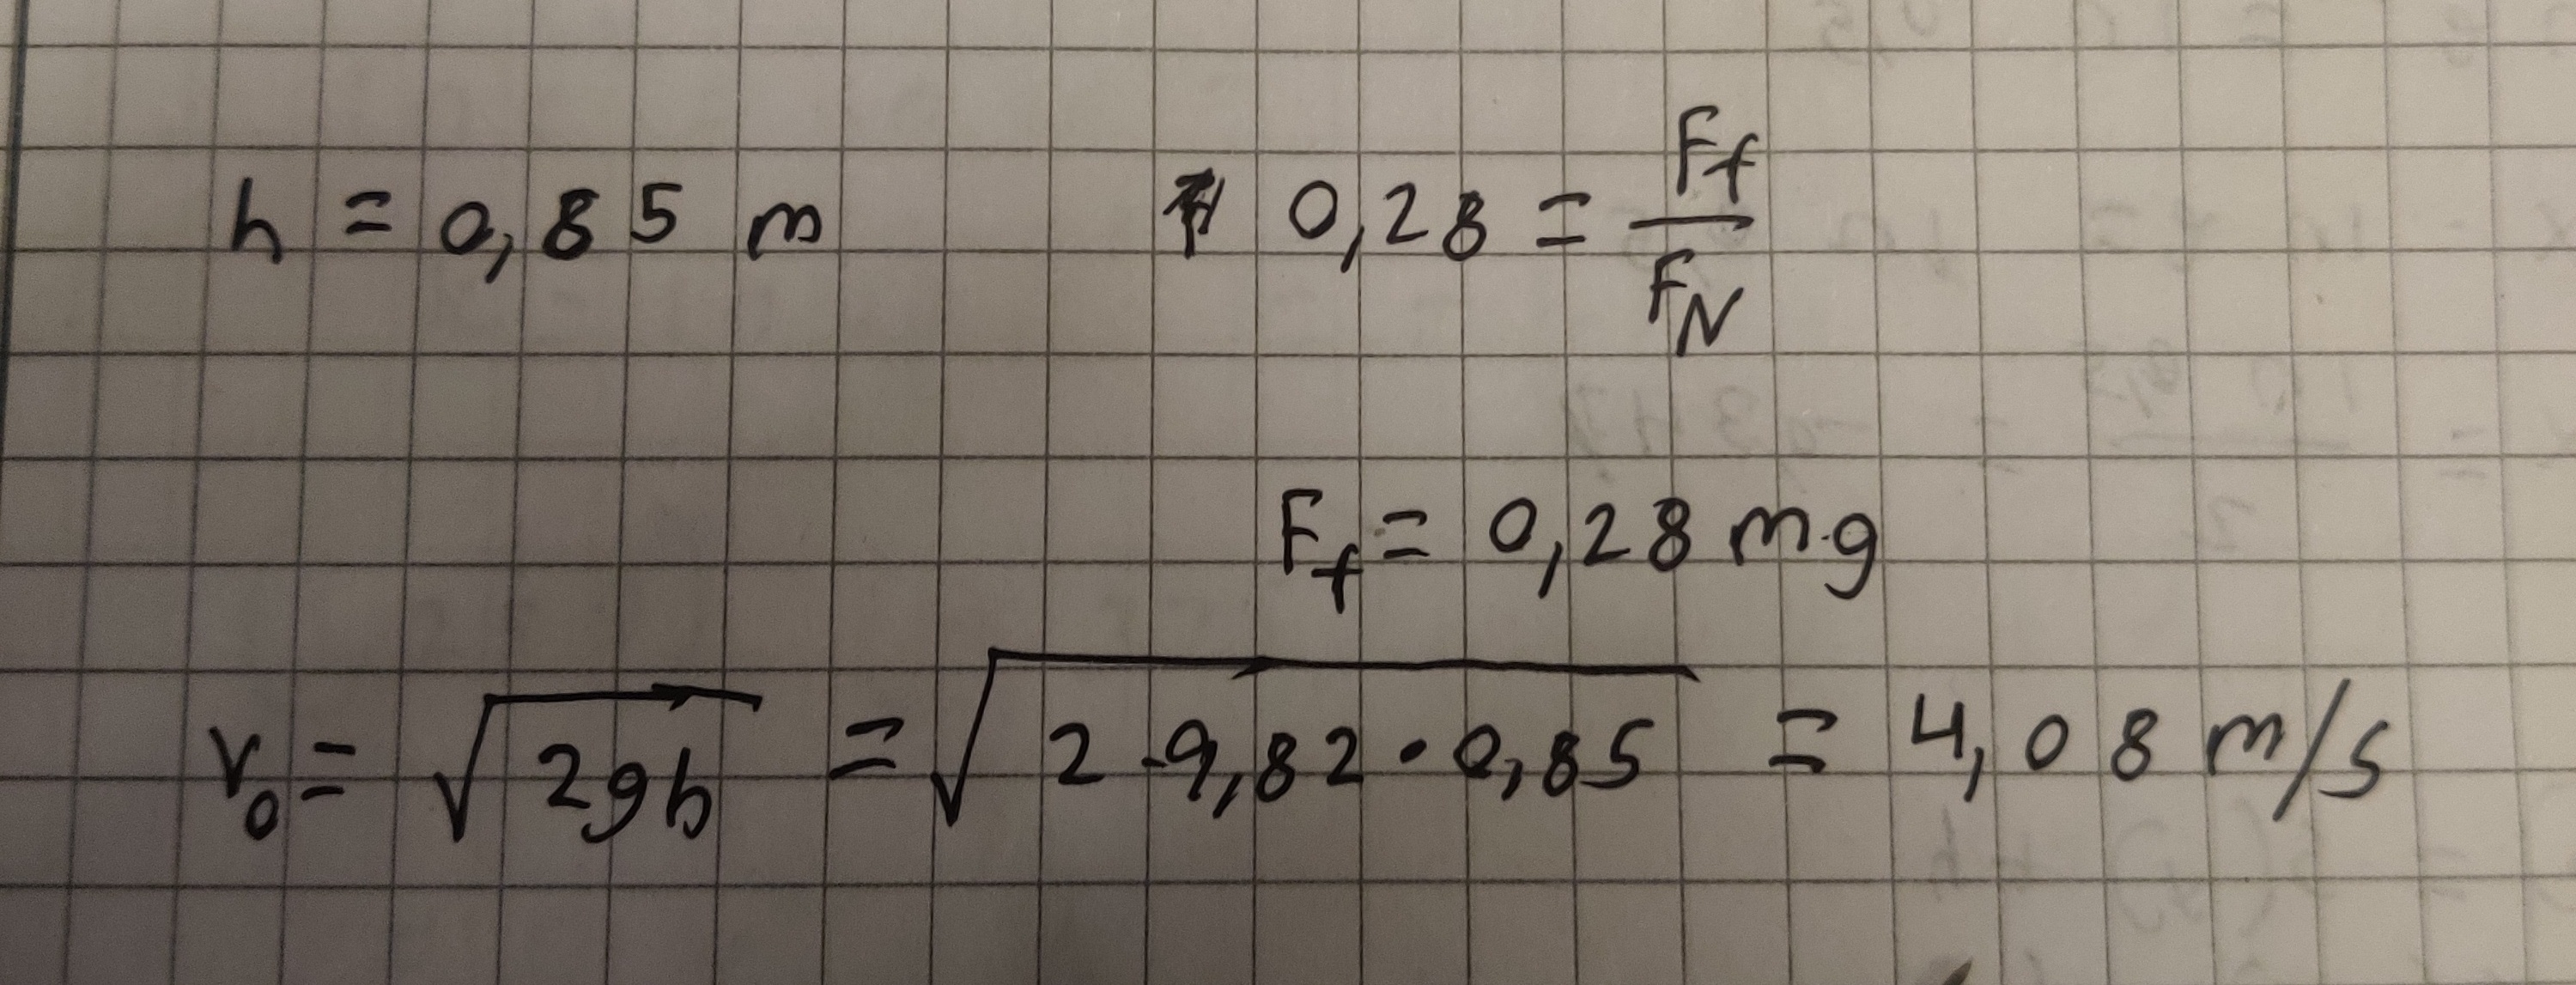 h = 0,85 m
0,28 = F_f / F_N
F_f = 0,28 m·g
v_0 = √(2gh) = √(2·9,82·0,85) = 4,08 m/s